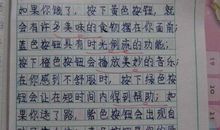 如果你饿了,按下黄色按钮,就
会有许多美味的食物摆在你面前;
蓝色按钮具有时光倒流的功能;
按下橙色按钮会播放美妙的音乐;
在你感到不舒服时,按下绿色按
钮会让在短时间内得到帮助;如
果你迷了路,紫色按钮会出现自